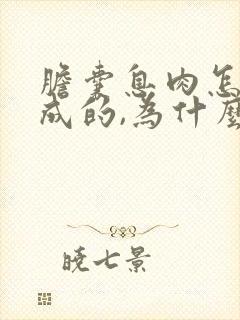 膽囊息肉怎
成的,為什麼
曉七景